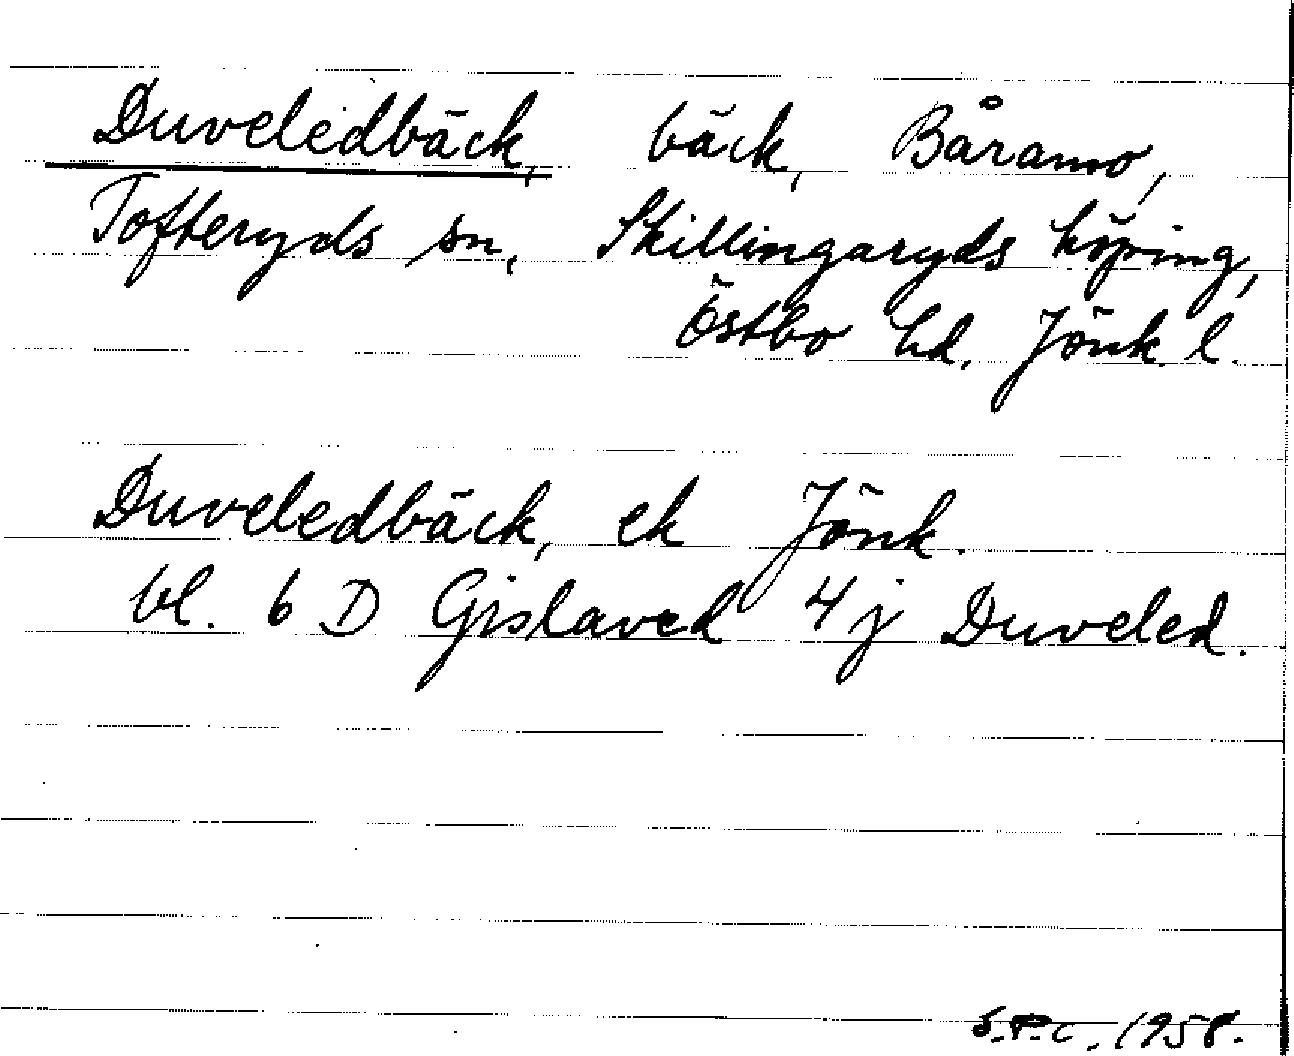 Duveledbäck, bäck, Båramo,
Tofteryds sn, Skillingaryds köping,
Östbo hd. Jönk. l.
Duveledbäck, ek Jönk.
bl. 6 D Gislaved 4 j Duveled.
S.P.C. 1958.